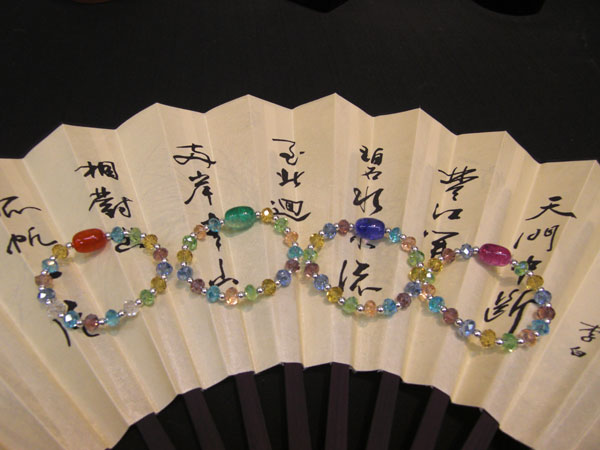 天門中斷
楚江開
碧水東流
至此迴
兩岸青山
相對出
孤帆
李白